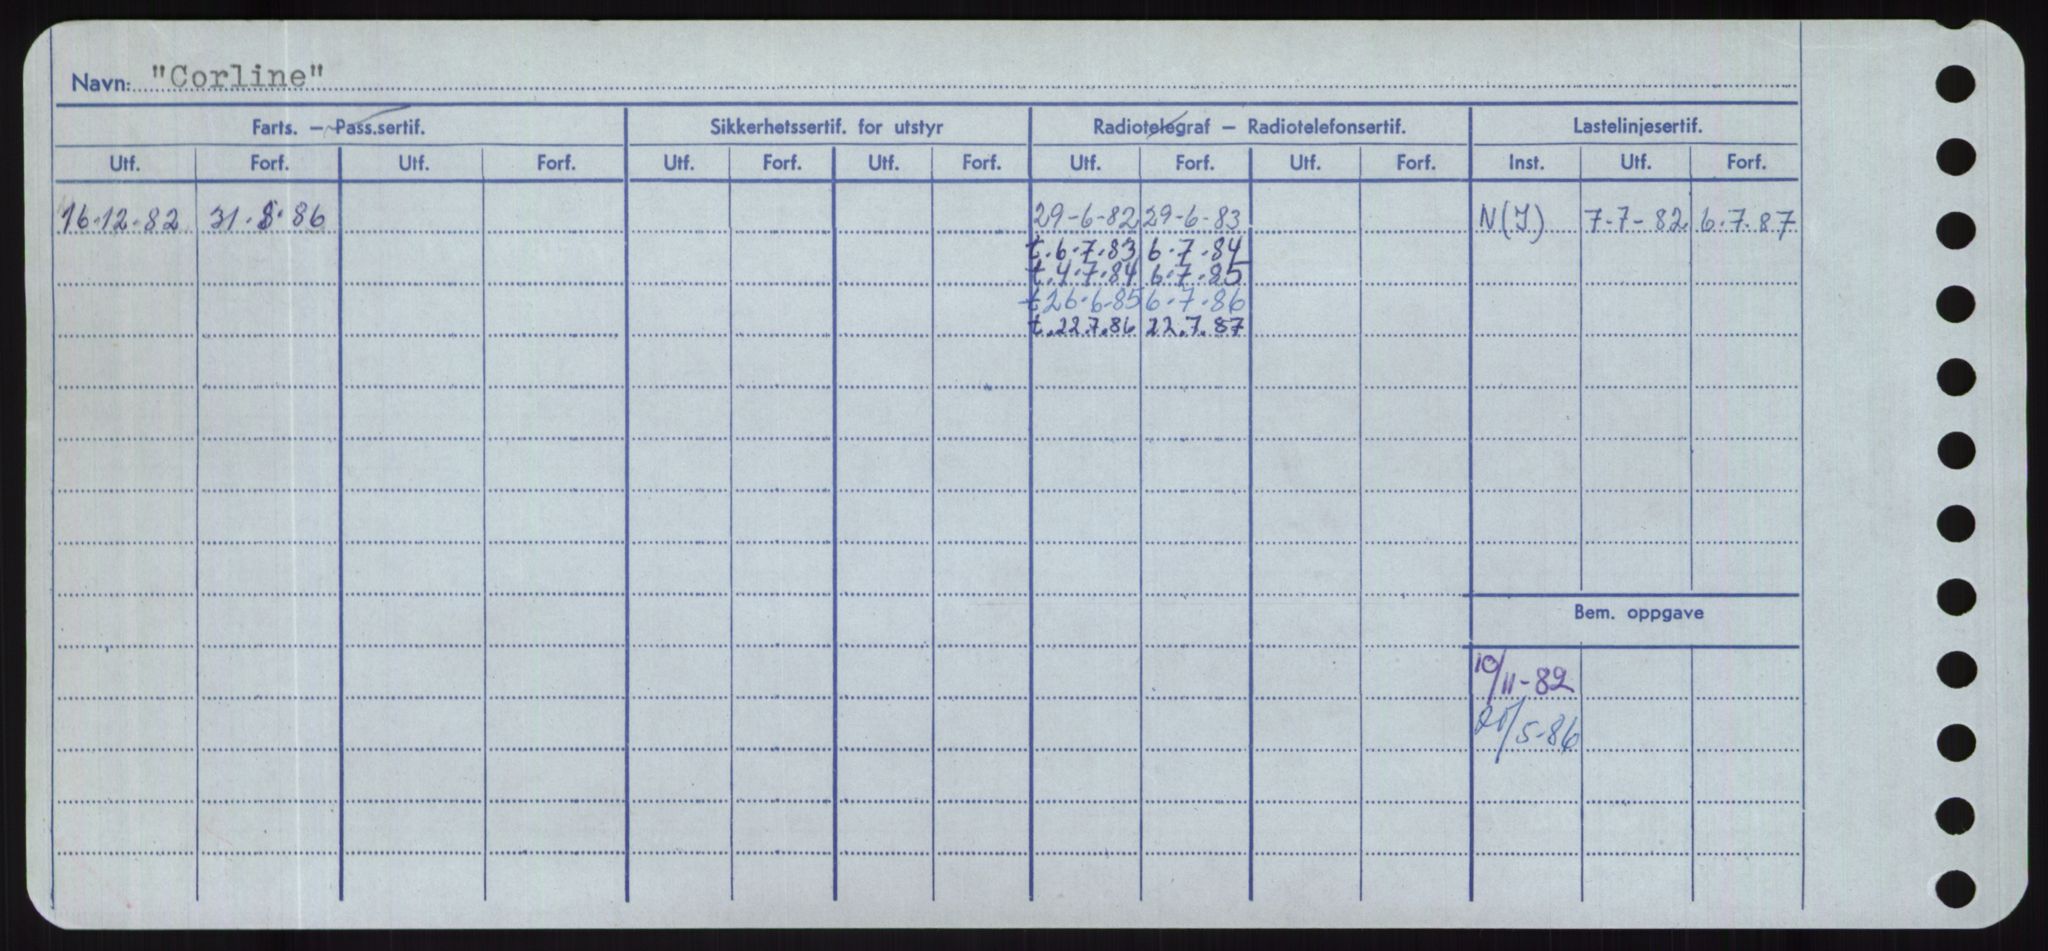 Navn: "Corline"
Farts. — Pass.sertif. Sikkerhetssertif. for utstyr Radiotelegraf — Radiotelefonsertif. Lastelinjesertif.
Utf. Forf. Utf. Forf. Utf. Forf. Utf. Forf. Utf. Forf. Utf. Forf. Inst. Utf. Forf.
16-12-82 31.8.86 29-6-82 29-6-83 N(J) 7-7-82 6.7.87
t.6.7.83 6.7.84
t.4.7.84 6.7.85
t26-6-85 6.7.86
t.22.7.86 22.7.87
Bem. oppgave
10/11-82
/5-86